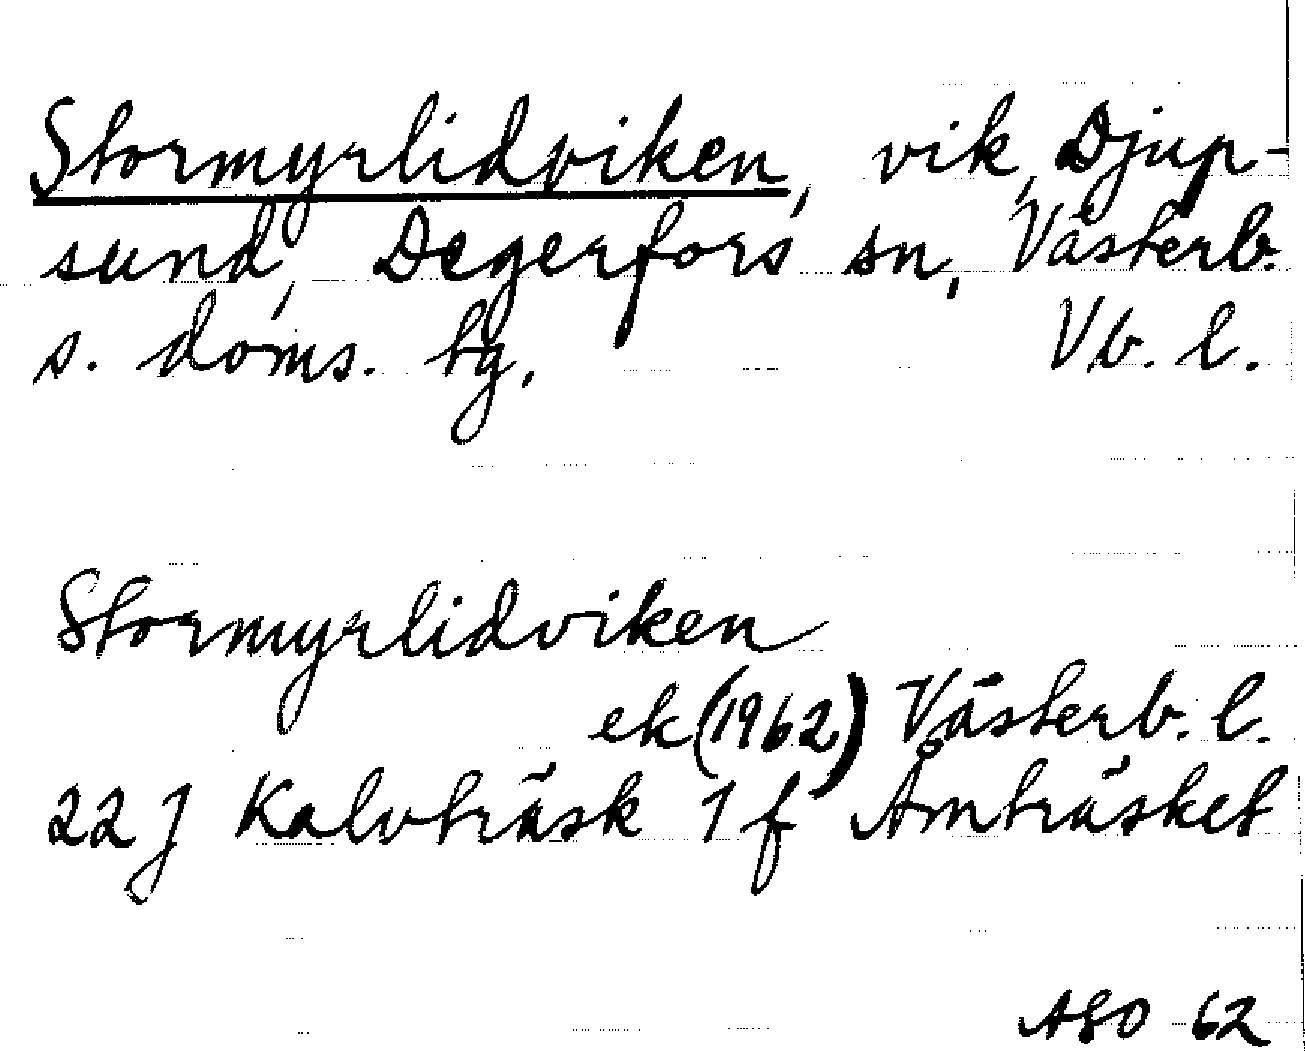 Stormyrlidviken, vik, Djup-
sund, Degerfors sn, Västerb.
s. doms. tg,          Vb. l.
Stormyrlidviken
ek (1962) Västerb. l.
22 J Kalvträsk 1 f Åmträsket
ASO 62